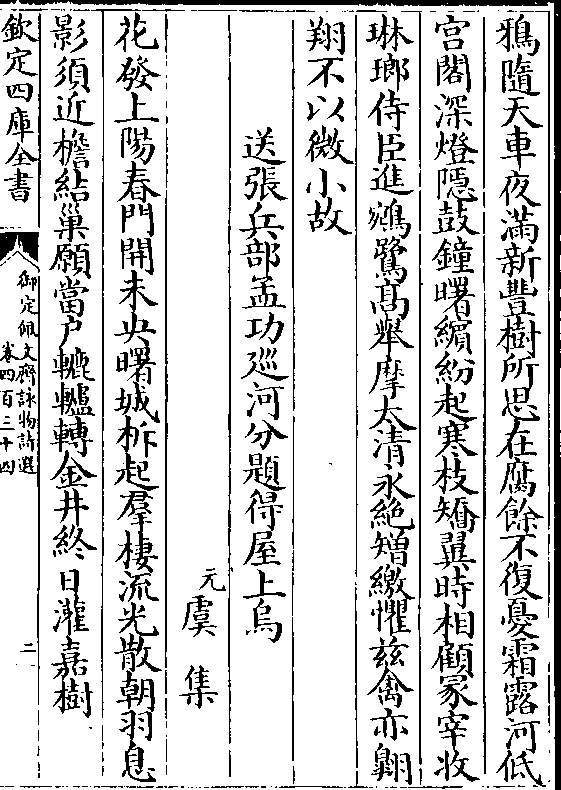 鴉隨天車夜滿新豐樹所思在腐餘不復憂霜露河低
宮閣深燈隱鼓鐘曙繽紛起寒枝矯翼時相顧冢宰收
琳瑯侍臣進鵷鷺髙舉摩太清永絶矰繳懼兹禽亦翺
翔不以微小故
送張兵部孟功巡河分題得屋上烏
元
虞集
花發上陽春門開未央曙城柝起羣棲流光散朝羽息
影須近檐結巢願當户轆轤轉金井終日灌嘉樹
欽定四庫全書
御定佩文齋詠物詩選
卷四百三十四
二